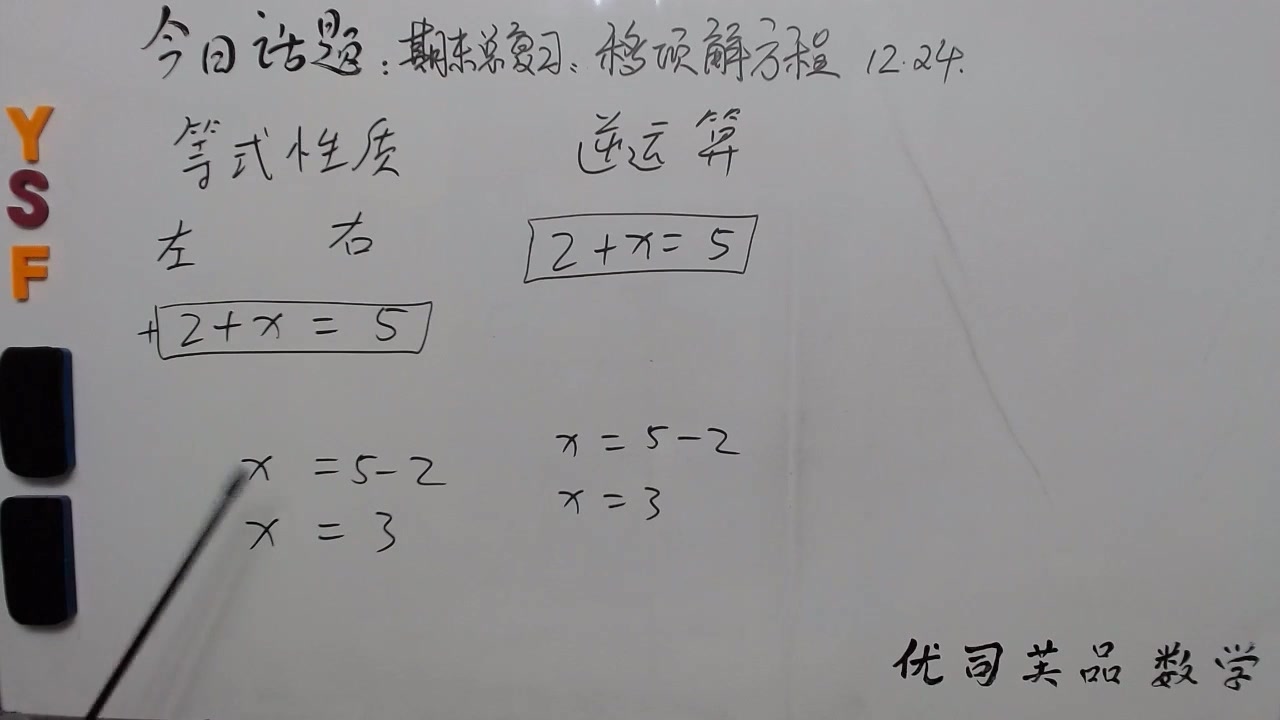 今日话题：期末总复习：移项解方程 12.24.
YSF
等式性质
左 右
+2+x = 5
x =5-2
x = 3
逆运算
2+x= 5
x = 5-2
x = 3
优司英品数学